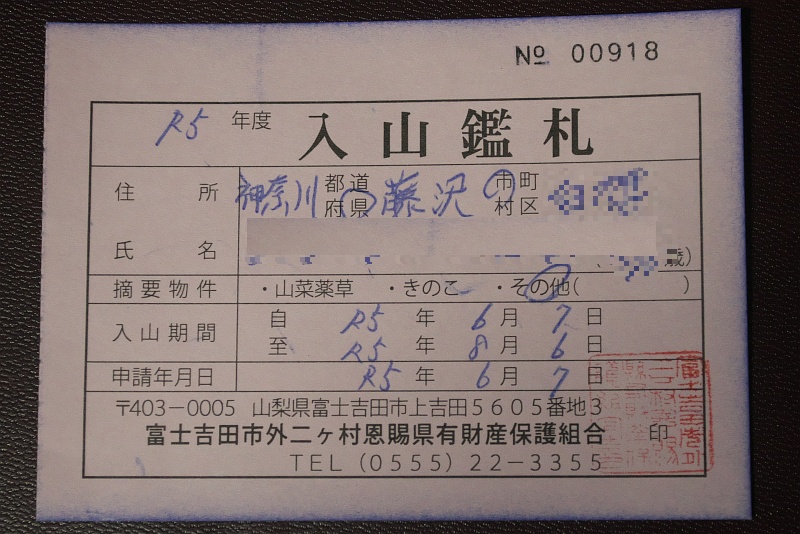 № 00918
R5 年度 入山鑑札
住所 神奈川 都道府県 藤沢 市町村区
氏名 歳)
摘要物件 ・山菜薬草 ・きのこ ・その他( )
入山期間 自 R5 年 6 月 7 日
至 R5 年 8 月 6 日
申請年月日 R5 年 6 月 7 日
〒403－0005 山梨県富士吉田市上吉田5605番地3
富士吉田市外二ヶ村恩賜県有財産保護組合 印
TEL (0555) 22－3355